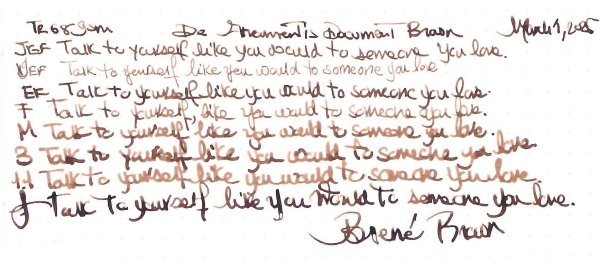 TR 68gsm De Atramentis Document Brown March 1, 2025
JEF Talk to yourself like you would to someone you love.
UEF Talk to yourself like you would to someone you love
EF Talk to yourself like you would to someone you love.
F Talk to yourself, like you would to someone you love.
M Talk to yourself like you would to someone you love.
B Talk to yourself like you would to someone you love.
1.1 Talk to yourself like you would to someone you love.
J Talk to yourself like you would to someone you love.
Brené Brown